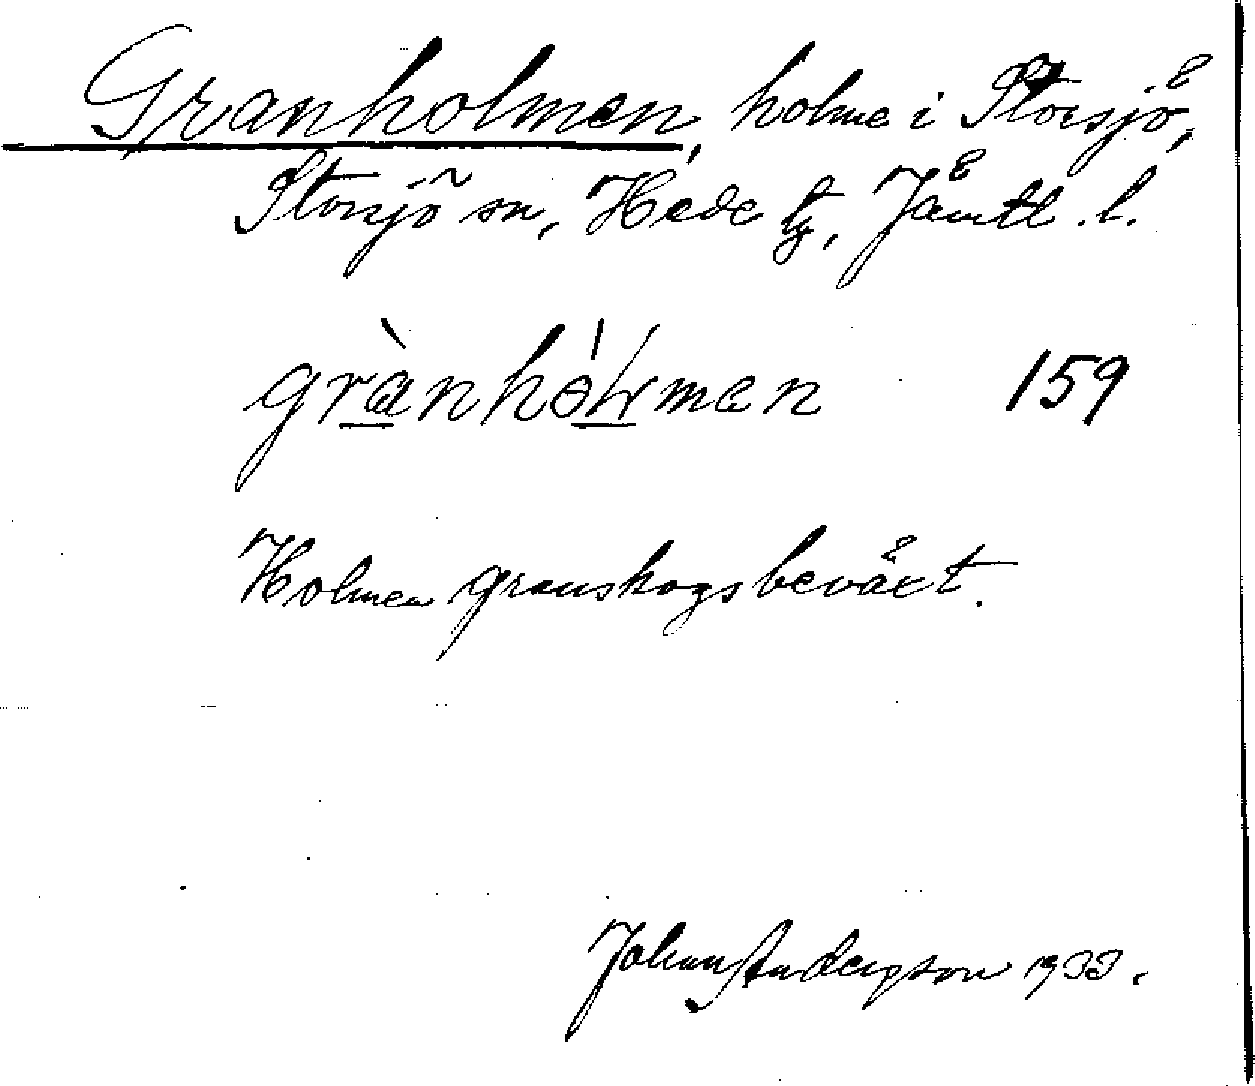 Granholmen, holme i Storsjö,
Storsjö sn, Hede tg, Jämtl. l.
grànhɵ̀ɫmen 159
Holmen granskogsbeväxt.
Johan Anderson 1933.